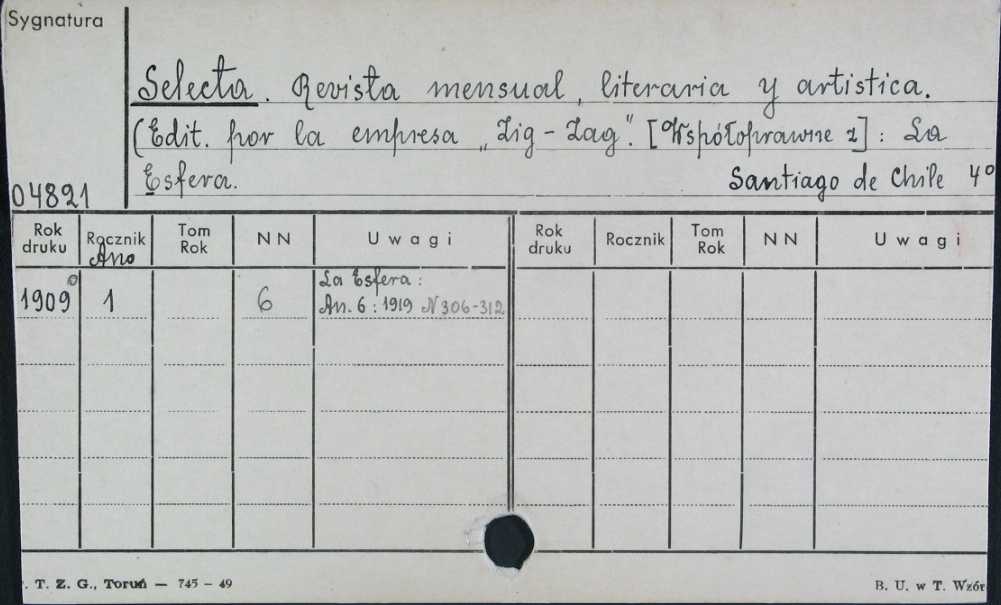 Sygnatura
Selecta. Revista mensual, literaria y artistica.
(Edit. por la empresa „Zig-Zag". [Współoprawne z]: La
Esfera. Santiago de Chile 4º
04821
Rok druku Rocznik Ano Tom Rok NN Uwagi Rok druku Rocznik Tom Rok NN Uwagi
1909 1 6 La Esfera:
An. 6: 1919 N 306-312
. T. Z. G., Toruń — 745 – 49 B. U. w T. Wzór